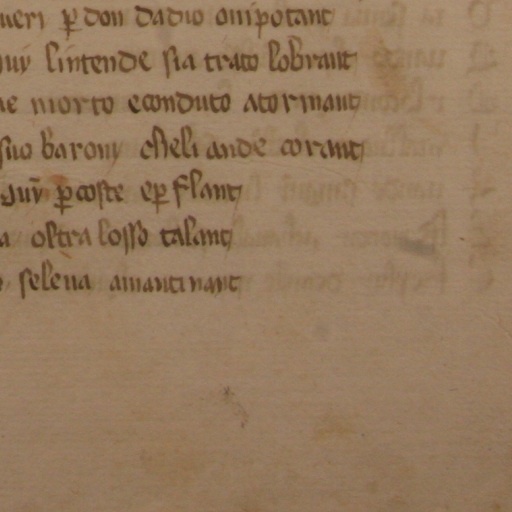 ueri ꝑ don dadio onipotant
uy lintende sia trato lobrant
e morto econduto atormant
suo barony cheli ande corant
guỹ ꝑcoste eꝑ flanc
a oltra losso talant
seleua amantinant